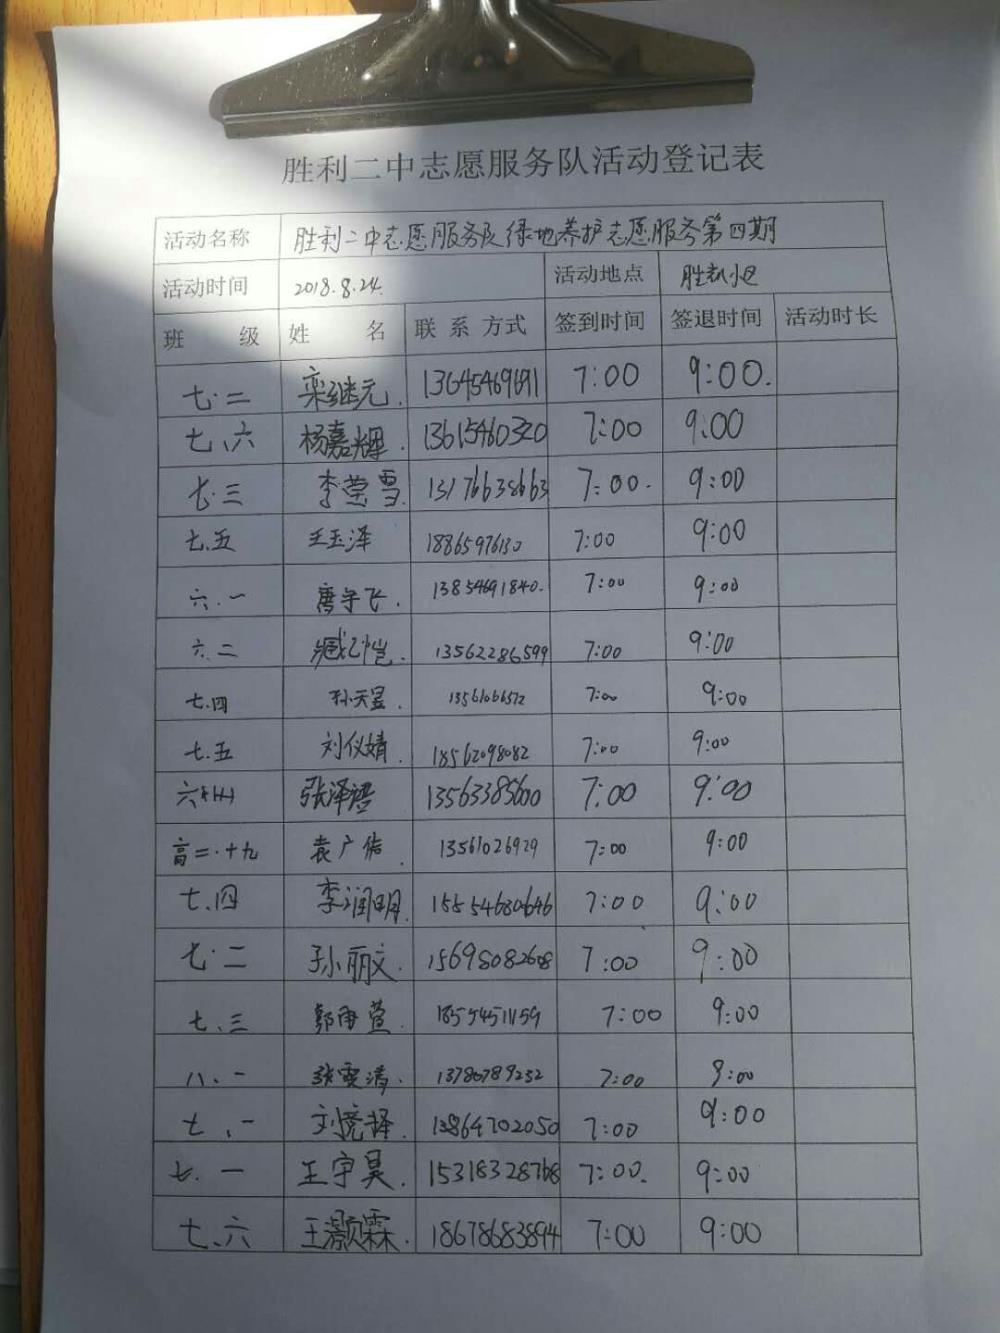 胜利二中志愿服务队活动登记表
活动名称 胜利二中志愿服务队绿地养护志愿服务第四期
活动时间 2018.8.24. 活动地点 胜利小区
班 级 姓 名 联系方式 签到时间 签退时间 活动时长
七.二 栾继元. 7:00 9:00.
七、六 杨嘉辉. 13615460320 7:00 9:00
七.三 李莹雪. 13176638663 7:00. 9:00
七.五 王玉泽 18865976130 7:00 9:00
六.一 唐宇飞. 13854691840. 7:00 9:00
六.二 臧恺. 13562286599 7:00 9:00
七.四 孙天昱. 13561066572 7:00 9:00
七.五 刘仪婧. 18562098082 7:00 9:00
张泽 13563385600 7:00 9:00
高二.十九 袁广信. 13561026929 7:00 9:00
七.四 李润明. 15554680646 7:00 9:00
七.二 孙丽文. 15698082608 7:00 9:00
七.三 郭雨萱. 18554451159 7:00 9:00
八.一 张雯清. 13780789232 7:00 9:00
七.一 刘竞择. 13864702050 7:00 9:00
七.一 王宇昊. 15318328768 7:00. 9:00
七.六 王灏霖. 18678683894 7:00 9:00